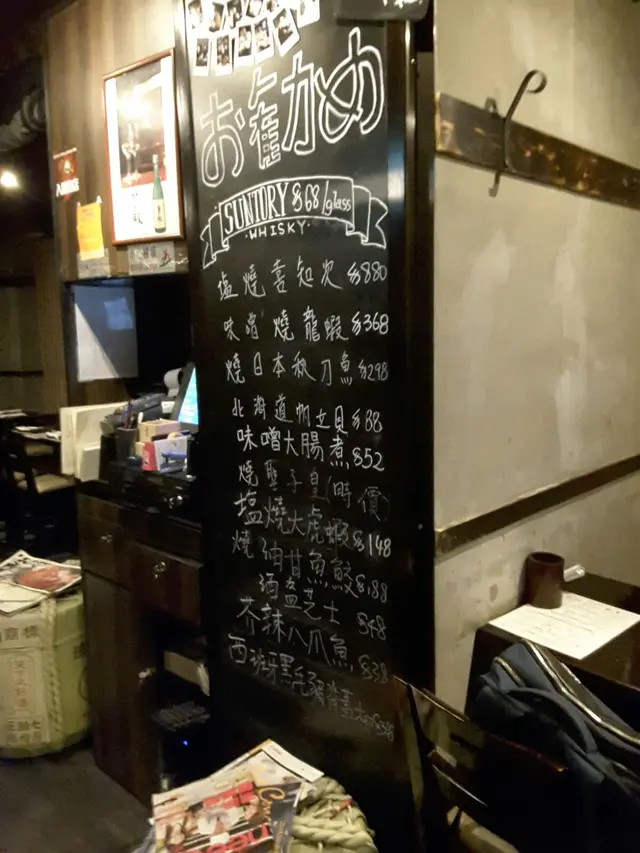 お奮カめ
SUNTORY $68/glass
WHISKY
塩燒喜知次 $880
味噌燒龍蝦 $368
燒日本秋刀魚 $298
北海道帆立貝 $88
味噌大腸煮 $52
燒聖子皇(時價)
塩燒大虎蝦 $148
燒油甘魚鮫 $188
酒盗芝士 $48
芥辣八爪魚 $38
西班牙黑毛豬